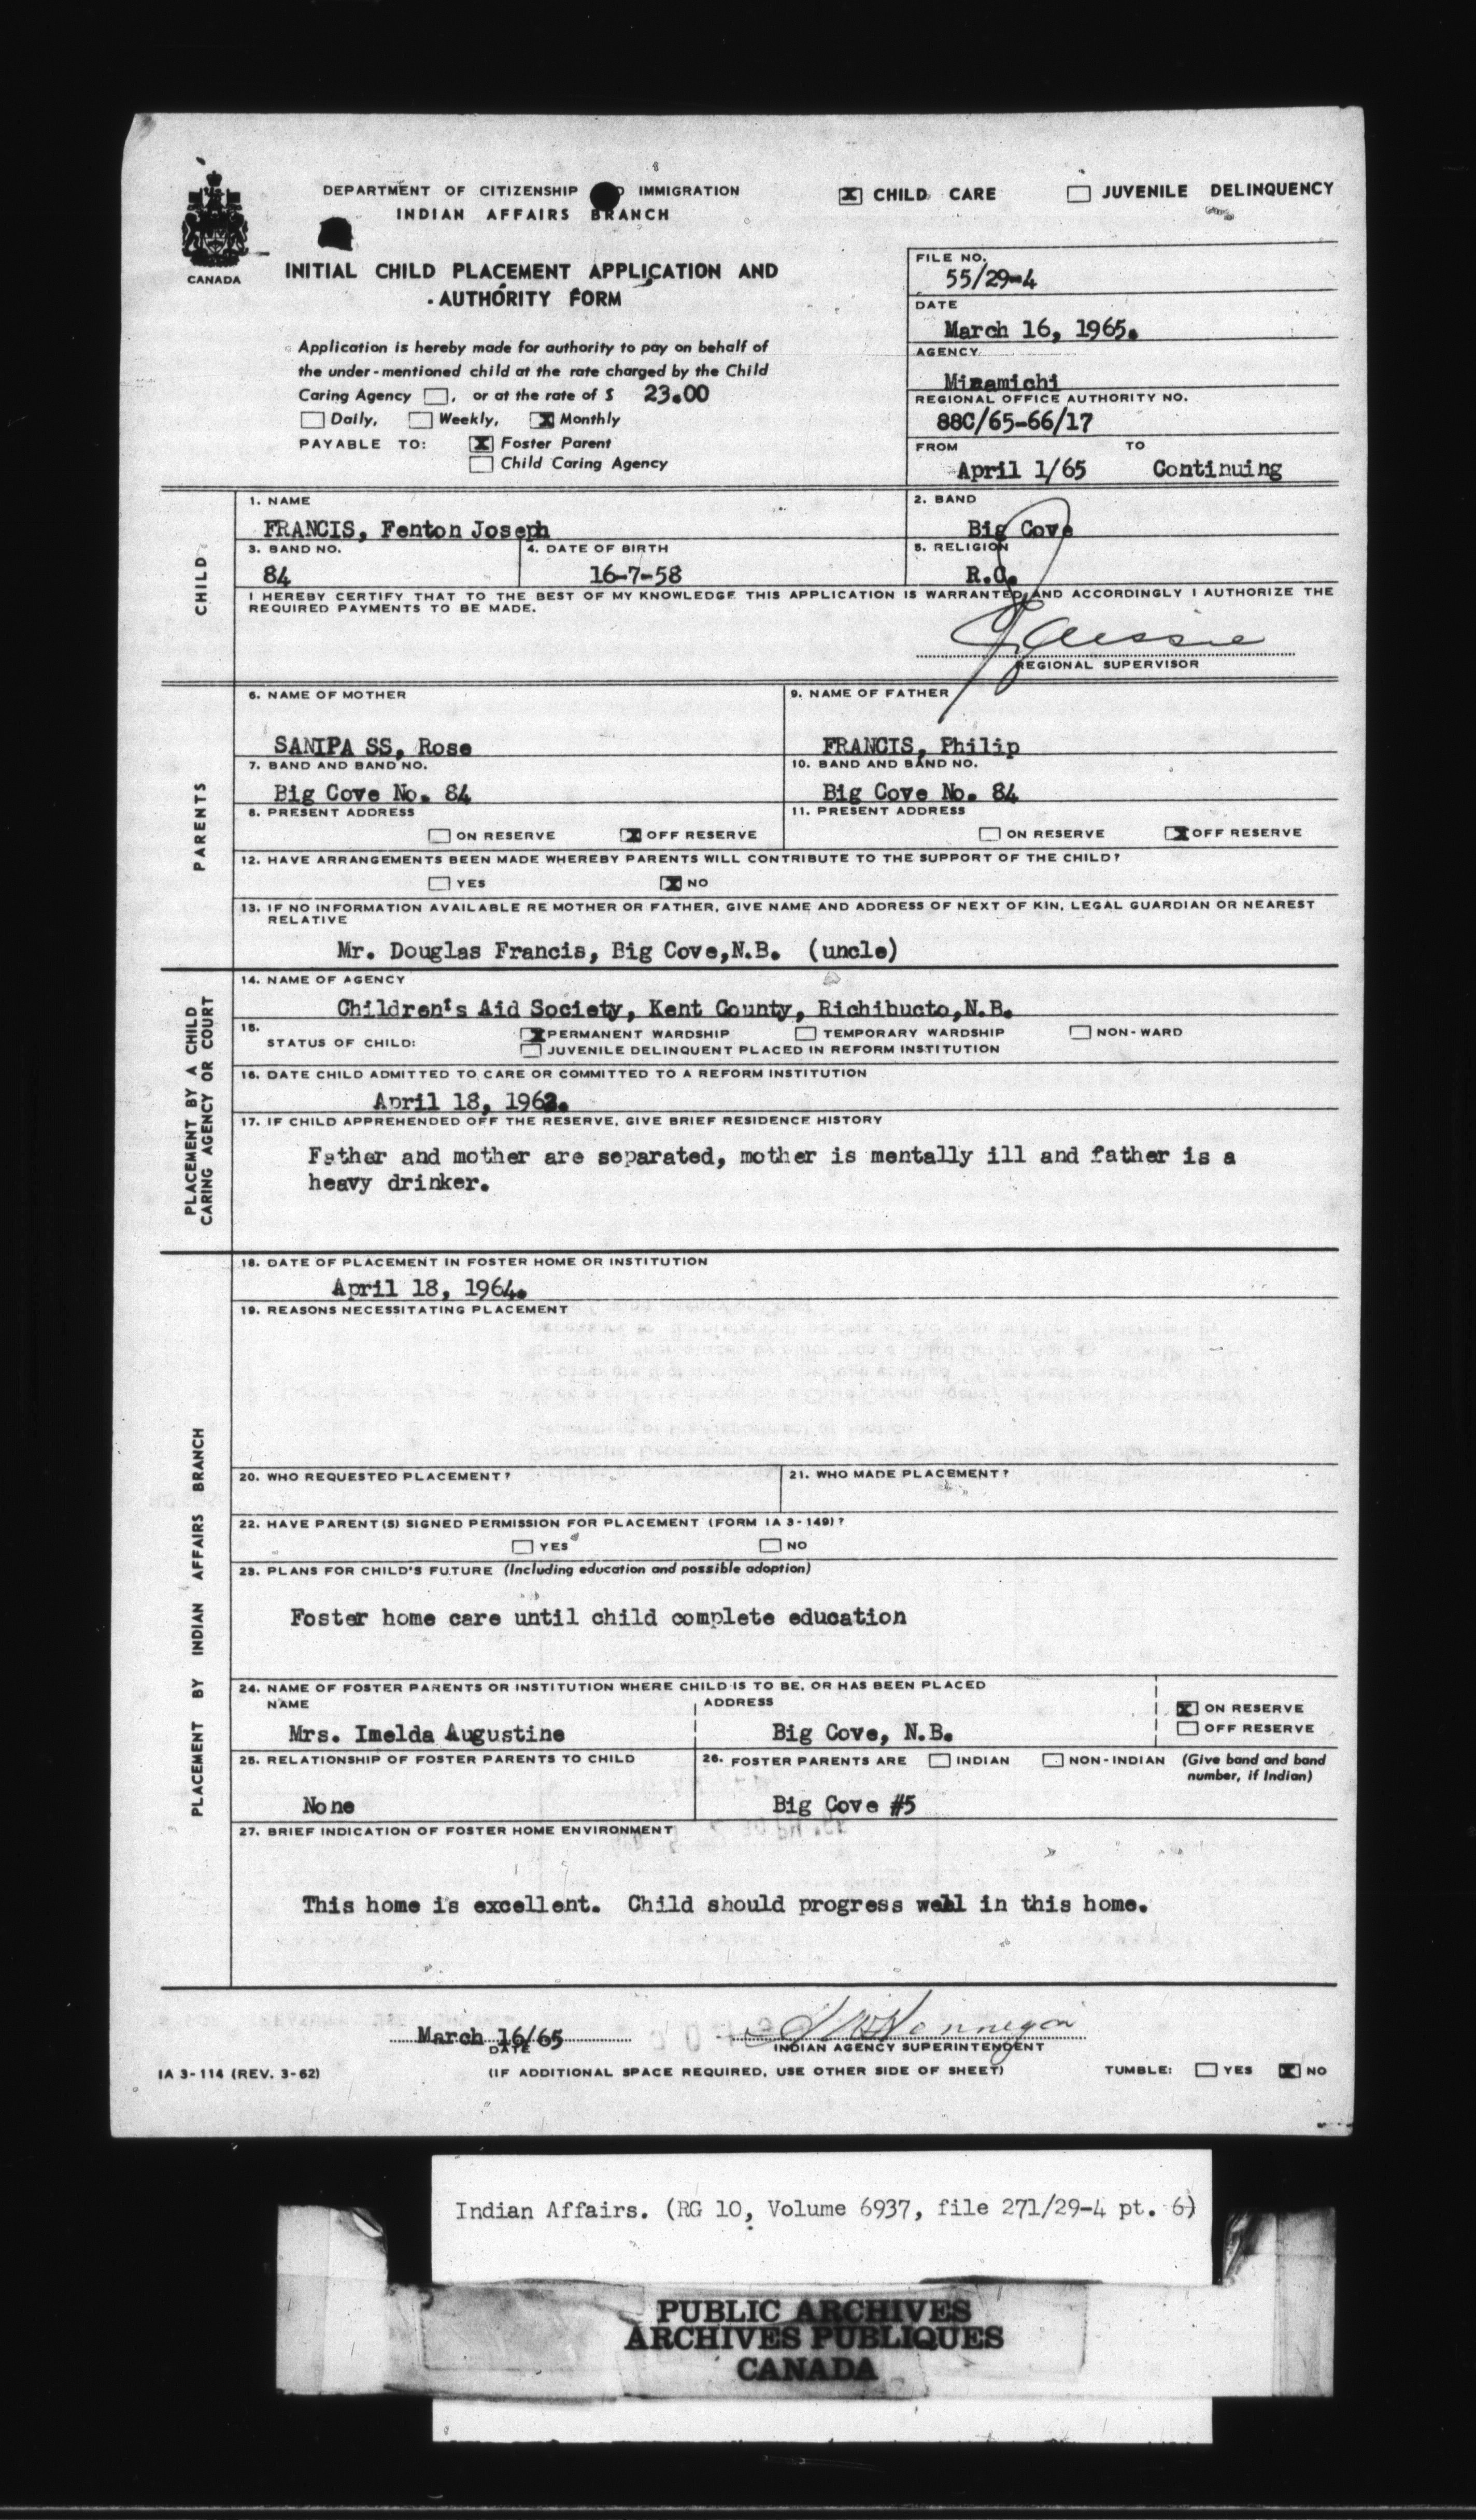 DEPARTMENT OF CITIZENSHIP D IMMIGRATION
INDIAN AFFAIRS BRANCH
☒ CHILD CARE ☐ JUVENILE DELINQUENCY
CANADA
INITIAL CHILD PLACEMENT APPLICATION AND
AUTHORITY FORM
FILE NO.
55/29-4
DATE
March 16, 1965.
AGENCY
Miramichi
REGIONAL OFFICE AUTHORITY NO.
88C/65-66/17
FROM TO
April 1/65 Continuing
Application is hereby made for authority to pay on behalf of
the under-mentioned child at the rate charged by the Child
Caring Agency ☐, or at the rate of $ 23.00
☐ Daily, ☐ Weekly, ☒ Monthly
PAYABLE TO: ☒ Foster Parent
☐ Child Caring Agency
CHILD
1. NAME
FRANCIS, Fenton Joseph
2. BAND
Big Cove
3. BAND NO.
84
4. DATE OF BIRTH
16-7-58
5. RELIGION
R.C.
I HEREBY CERTIFY THAT TO THE BEST OF MY KNOWLEDGE THIS APPLICATION IS WARRANTED AND ACCORDINGLY I AUTHORIZE THE
REQUIRED PAYMENTS TO BE MADE.
REGIONAL SUPERVISOR
PARENTS
6. NAME OF MOTHER
SANIPA SS, Rose
9. NAME OF FATHER
FRANCIS, Philip
7. BAND AND BAND NO.
Big Cove No. 84
10. BAND AND BAND NO.
Big Cove No. 84
8. PRESENT ADDRESS
☐ ON RESERVE ☒ OFF RESERVE
11. PRESENT ADDRESS
☐ ON RESERVE ☒ OFF RESERVE
12. HAVE ARRANGEMENTS BEEN MADE WHEREBY PARENTS WILL CONTRIBUTE TO THE SUPPORT OF THE CHILD?
☐ YES ☒ NO
13. IF NO INFORMATION AVAILABLE RE MOTHER OR FATHER, GIVE NAME AND ADDRESS OF NEXT OF KIN, LEGAL GUARDIAN OR NEAREST
RELATIVE
Mr. Douglas Francis, Big Cove,N.B. (uncle)
PLACEMENT BY A CHILD
CARING AGENCY OR COURT
14. NAME OF AGENCY
Children's Aid Society, Kent County, Richibucto,N.B.
15.
STATUS OF CHILD: ☒ PERMANENT WARDSHIP ☐ TEMPORARY WARDSHIP ☐ NON-WARD
☐ JUVENILE DELINQUENT PLACED IN REFORM INSTITUTION
16. DATE CHILD ADMITTED TO CARE OR COMMITTED TO A REFORM INSTITUTION
April 18,
17. IF CHILD APPREHENDED OFF THE RESERVE, GIVE BRIEF RESIDENCE HISTORY
Father and mother are separated, mother is mentally ill and father is a
heavy drinker.
PLACEMENT BY INDIAN AFFAIRS BRANCH
18. DATE OF PLACEMENT IN FOSTER HOME OR INSTITUTION
April 18, 1964.
19. REASONS NECESSITATING PLACEMENT
20. WHO REQUESTED PLACEMENT?
21. WHO MADE PLACEMENT?
22. HAVE PARENT(S) SIGNED PERMISSION FOR PLACEMENT (FORM IA 3-149)?
☐ YES ☐ NO
23. PLANS FOR CHILD'S FUTURE (Including education and possible adoption)
Foster home care until child complete education
24. NAME OF FOSTER PARENTS OR INSTITUTION WHERE CHILD IS TO BE, OR HAS BEEN PLACED
NAME ADDRESS
Mrs. Imelda Augustine Big Cove, N.B.
☒ ON RESERVE
☐ OFF RESERVE
25. RELATIONSHIP OF FOSTER PARENTS TO CHILD
None
26. FOSTER PARENTS ARE ☐ INDIAN ☐ NON-INDIAN (Give band and band
number, if Indian)
Big Cove #5
27. BRIEF INDICATION OF FOSTER HOME ENVIRONMENT
This home is excellent. Child should progress well in this home.
March 16/65
DATE
INDIAN AGENCY SUPERINTENDENT
IA 3-114 (REV. 3-62) (IF ADDITIONAL SPACE REQUIRED, USE OTHER SIDE OF SHEET) TUMBLE: ☐ YES ☒ NO
Indian Affairs. (RG 10, Volume 6937, file 271/29-4 pt. 6)
PUBLIC ARCHIVES
ARCHIVES PUBLIQUES
CANADA